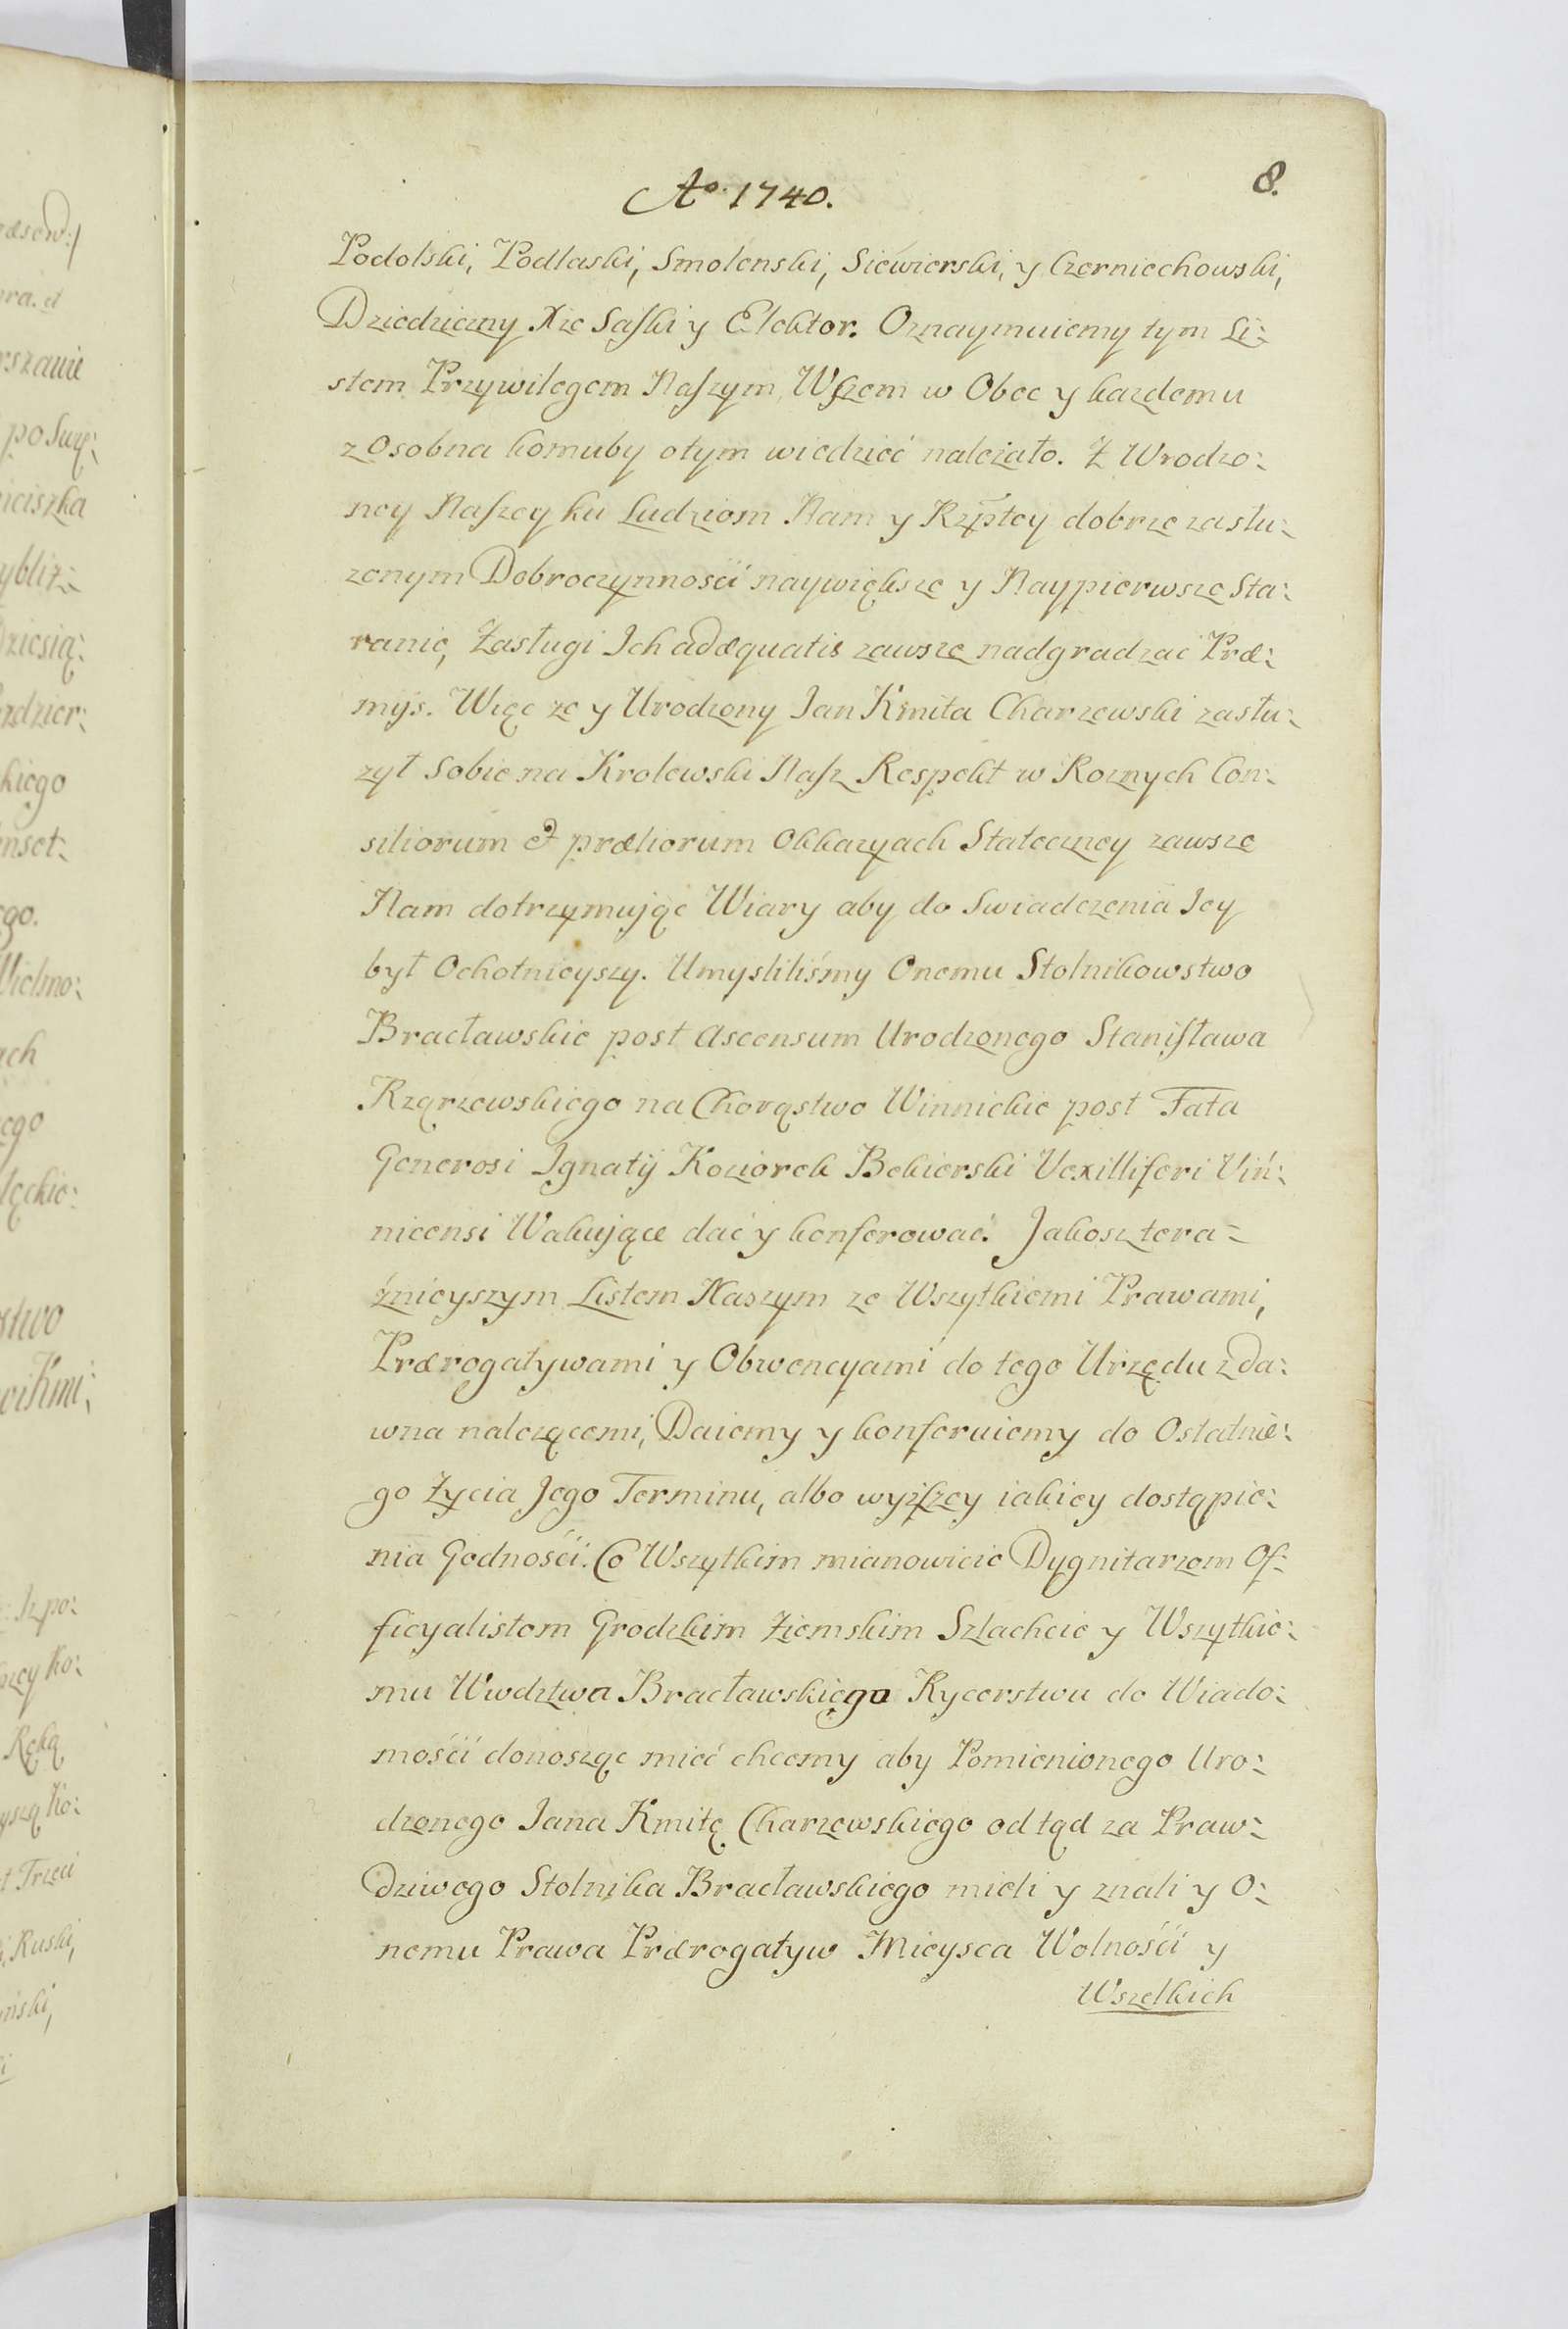 Ao. 1740.
8.
Podolski, Podlaski, Smolenski, Siewierski, y Czerniechowski,
Dziedziczny Xże Saski y Elektor. Oznaymuiemy tym Li:
stem Przywilegem Naszym, Wszem w Obec y kazdemu
z Osobna komuby otym wiedzieć należało. Z Wrodzo:
ney Naszey ku Ludziom Nam y Rzptey dobrze zasłu:
zonym Dobroczynnośći naywiększe y Naypierwsze Sta:
ranie, Zasługi Ich adæquatis zawsze nadgradzać Præ:
mÿs. Więc ze y Urodzony Jan Kmita Charzewski zasłu:
zył sobie na Krolewski Nasz Respekt w Roznych Con:
siliorum et præliorum Okkazyach Stateczney zawsze
Nam dotrzymując Wiary aby do Swiadczenia Jey
był Ochotnieyszy. Umysliliśmy Onemu Stolnikowstwo
Bracławskie post Ascensum Urodzonego Stanisława
Rzązewskiego na Chorąstwo Winnickie post Fata
Generosi Ignatij Koziorek Bekierski Vexilliferi Viń:
nicensi Wakujące dać y konferować. Jakosz tera=
źnieyszym Listem Naszym ze Wszytkiemi Prawami,
Prærogatywami y Obwencyami do tego Urzędu zda:
wna nalezącemi, Daiemy y konferuiemy do Ostatnie:
go Życia Jego Terminu, albo wyższey iakiey dostąpie:
nia Godnośći. Co Wszytkim mianowicie Dygnitarzom Of:
ficyalistom Grodzkim Ziemskim Szlachcie y Wszytkie:
mu Wwdztwa Bracławskiego Rycerstwu do Wiado:
mośći donosząc mieć chcemy aby Pomienionego Uro:
dzonego Jana Kmitę Charzewskiego od tąd za Praw:
Dziwego Stolnika Bracławskiego mieli y znali y O:
nemu Prawa Prærogatyw Mieysca Wolnośći y
Wszelkich